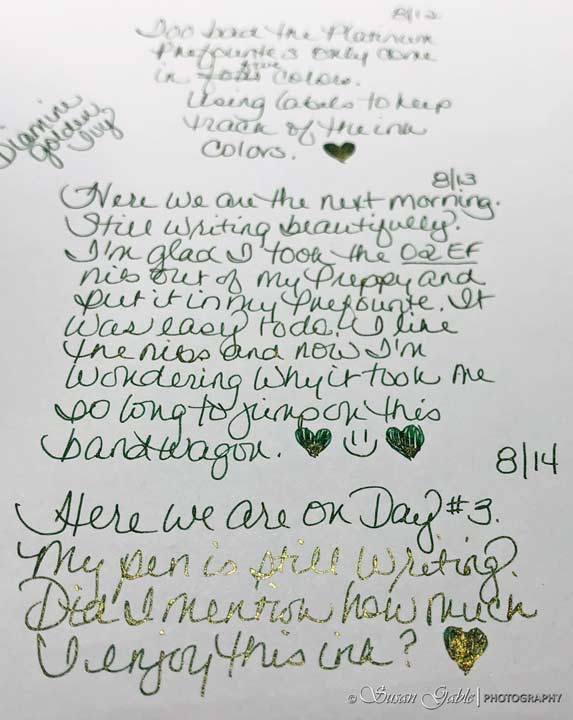 8/12
Too bad the Platinum
Prefountes only come
in five colors.
Using labels to keep
track of the ink
colors.
Diamine
golden
Ivy
8/13
Here we are the next morning.
Still writing beautifully.
I'm glad I took the 02 EF
nib out of my Preppy and
put it in my Prefounte. It
was easy to do. I like
the nibs and now I'm
wondering why it took me
so long to jump on this
bandwagon.
8/14
Here we are on Day #3.
My pen is still writing.
Did I mention how much
I enjoy this ink?
© Susan Gable | PHOTOGRAPHY